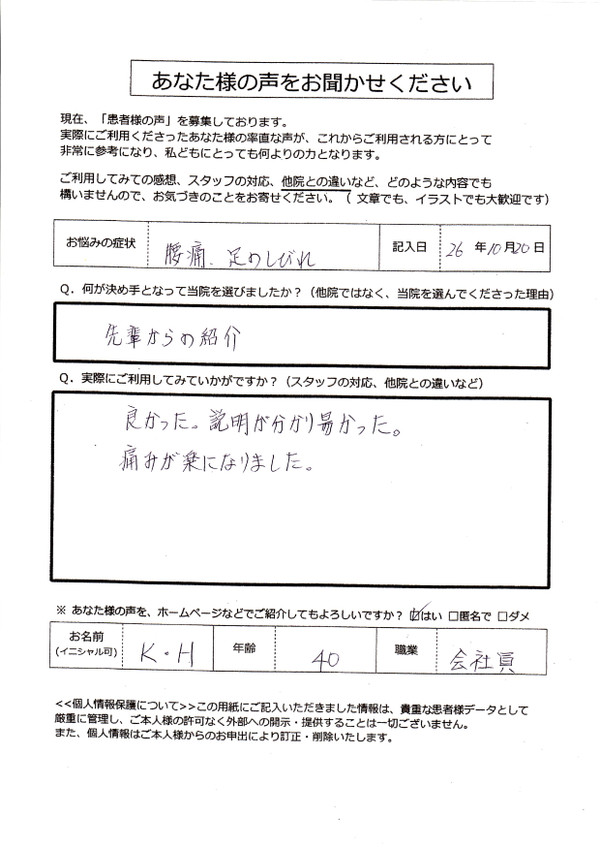 あなた様の声をお聞かせください
現在、「患者様の声」を募集しております。
実際にご利用くださったあなた様の率直な声が、これからご利用される方にとって
非常に参考になり、私どもにとっても何よりの力となります。
ご利用してみての感想、スタッフの対応、他院との違いなど、どのような内容でも
構いませんので、お気づきのことをお寄せください。（ 文章でも、イラストでも大歓迎です）
お悩みの症状 腰痛、足のしびれ 記入日 26 年10月20日
Q．何が決め手となって当院を選びましたか？（他院ではなく、当院を選んでくださった理由）
先輩からの紹介
Q．実際にご利用してみていかがですか？（スタッフの対応、他院との違いなど）
良かった。説明が分かり易かった。
痛みが楽になりました。
※ あなた様の声を、ホームページなどでご紹介してもよろしいですか？ ☑はい □匿名で □ダメ
お名前 (イニシャル可) K・H 年齢 40 職業 会社員
<<個人情報保護について>>この用紙にご記入いただきました情報は、貴重な患者様データとして
厳重に管理し、ご本人様の許可なく外部への開示・提供することは一切ございません。
また、個人情報はご本人様からのお申出により訂正・削除いたします。